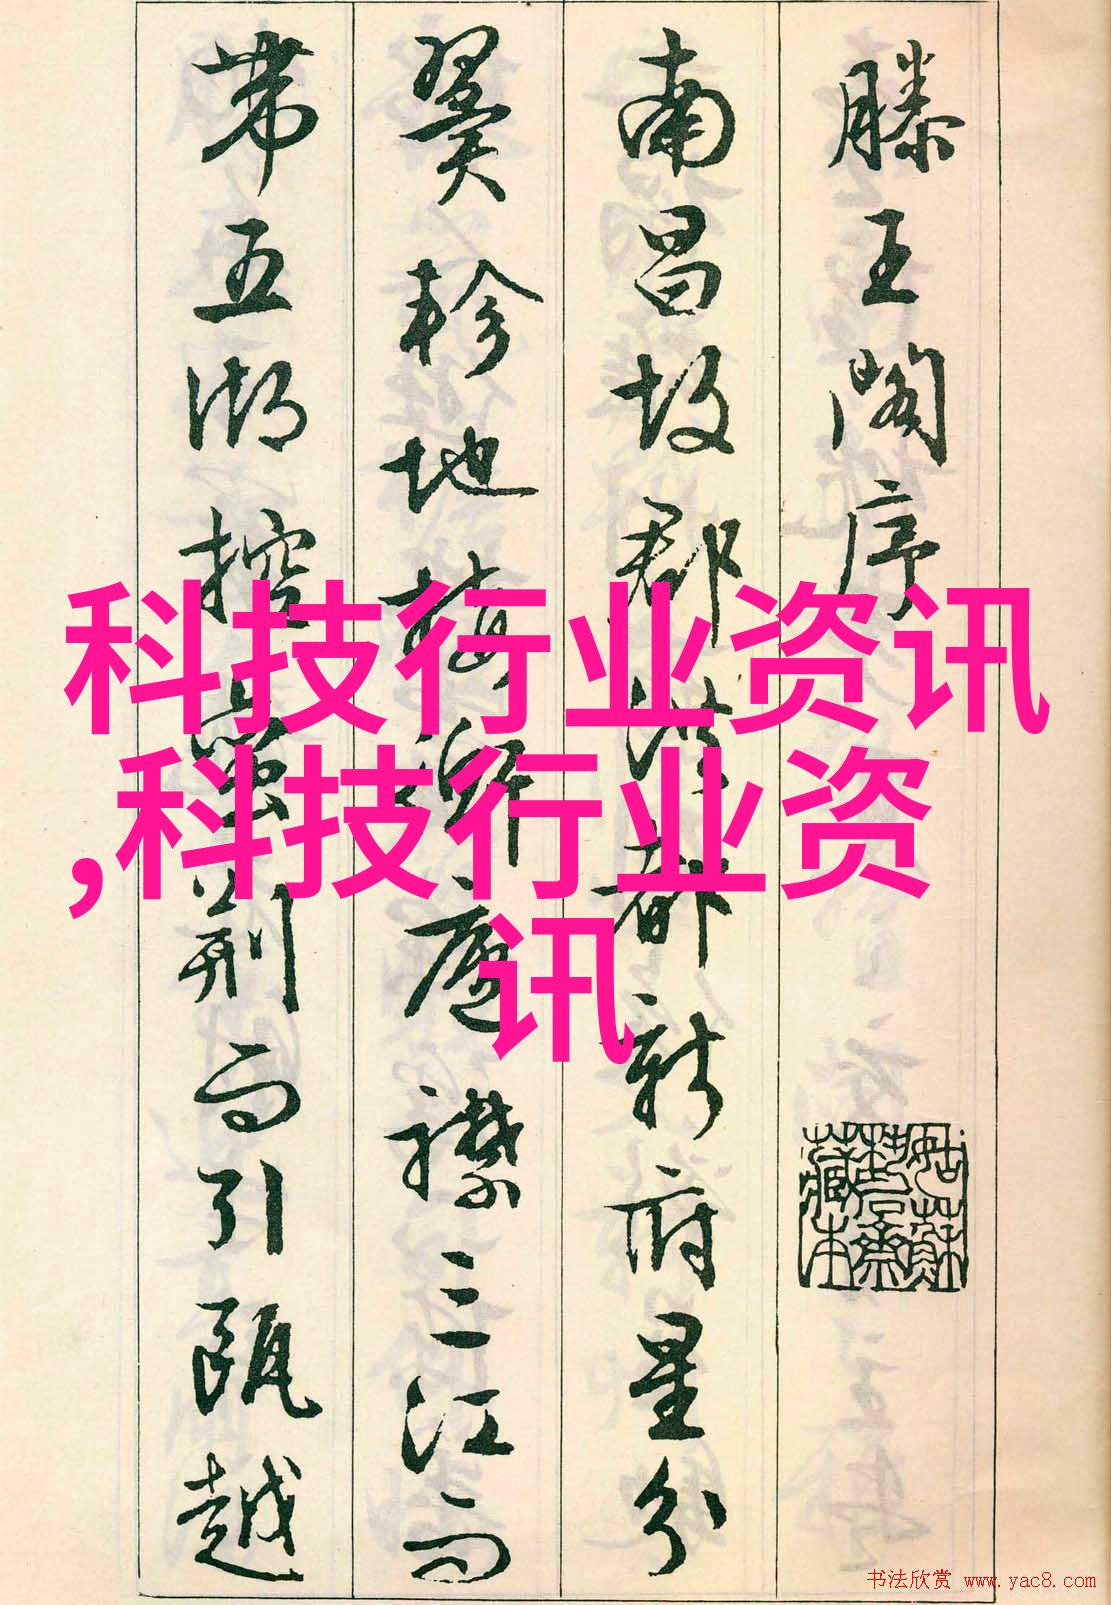 滕王閣序
南昌故郡洪都新府星分
翼軫地接衡廬襟三江而
帶五湖控蠻荊而引甌越
科技行业资讯
,科技行业资
讯
书法欣赏 www.yac8.com